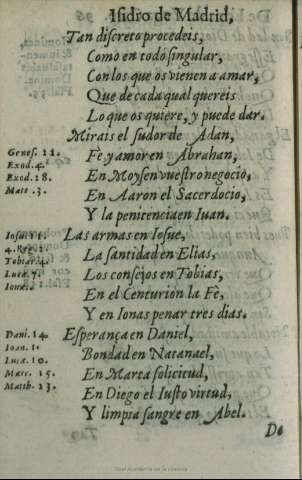 Isidro de Madrid,
Tan discreto procedeis,
Como en todo singular,
Con los que os vienen a amar,
Que de cada qual quereis
Lo que os quiere, y puede dar.
Mirais el sudor de Adan,
Genes. 22.
Fe, y amor en Abrahan,
Exod. 4.
En Moysen vuestro negocio,
Exod. 28.
En Aaron el Sacerdocio,
Matt. 3.
Y la penitencia en Iuan.
Iosue 11.
Las armas en Iosue,
4. Reg. 2.
La santidad en Elias,
Tobiae 4.
Los consejos en Tobias,
Lucae, 7.
En el Centurion la Fê,
Ionae.
Y en Ionas penar tres dias.
Dani. 14.
Esperança en Daniel,
Ioan. 1.
Bondad en Natanael,
Lucae, 10.
En Marta solicitud,
Marc. 15.
En Diego el Iusto virtud,
Matth. 23.
Y limpia sangre en Abel.
De
Real Academia de la Historia